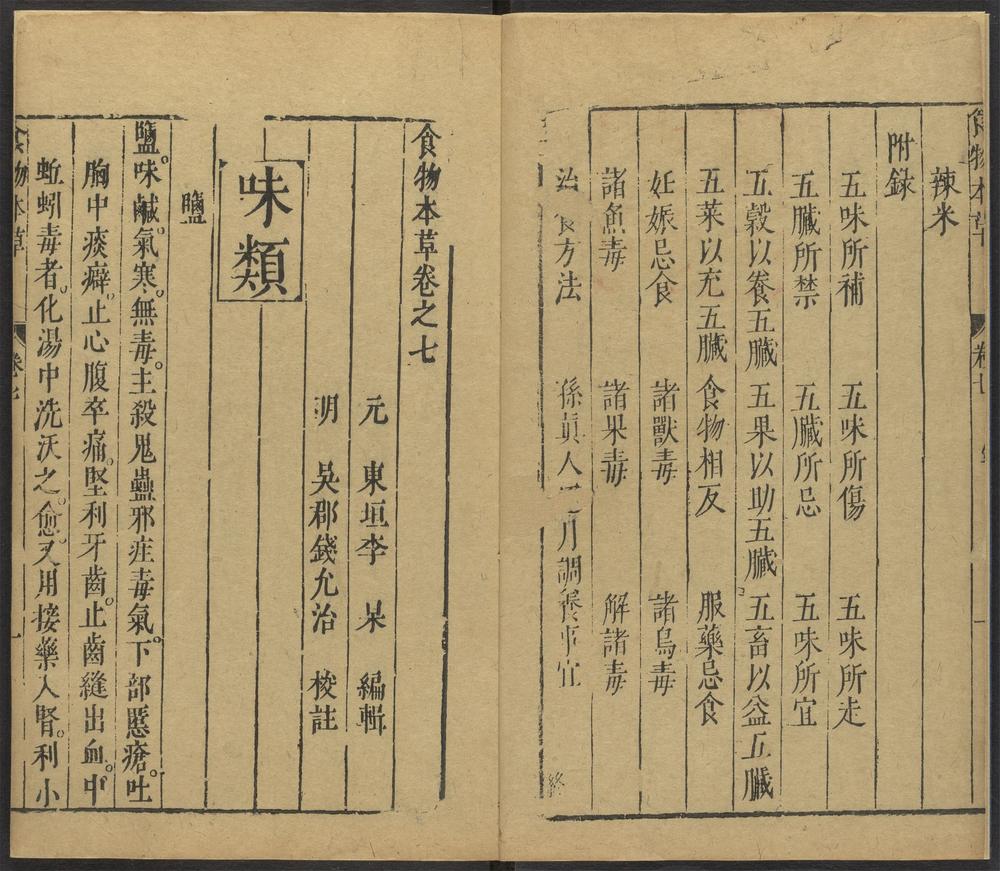 食物本草 卷七
辣米
附錄
五味所補 五味所傷 五味所走
五臟所禁 五臟所忌 五味所宜
五穀以養五臟 五果以助五臟 五畜以益五臟
五菜以充五臟 食物相反 服藥忌食
妊娠忌食 諸獸毒 諸鳥毒
諸魚毒 諸果毒 解諸毒
治食方法 孫真人 月調養事宜
終
食物本草卷之七
元 東垣李 杲 編輯
明 吳郡錢允治 校註
味類
鹽
鹽。味鹹。氣寒。無毒。主殺鬼蠱邪疰毒氣。下部䘌瘡。吐
胸中痰癖。止心腹卒痛。堅利牙齒。止齒縫出血。中
蚯蚓毒者。化湯中洗沃之。愈。又用接藥入腎。利小
食物本草 卷七 一